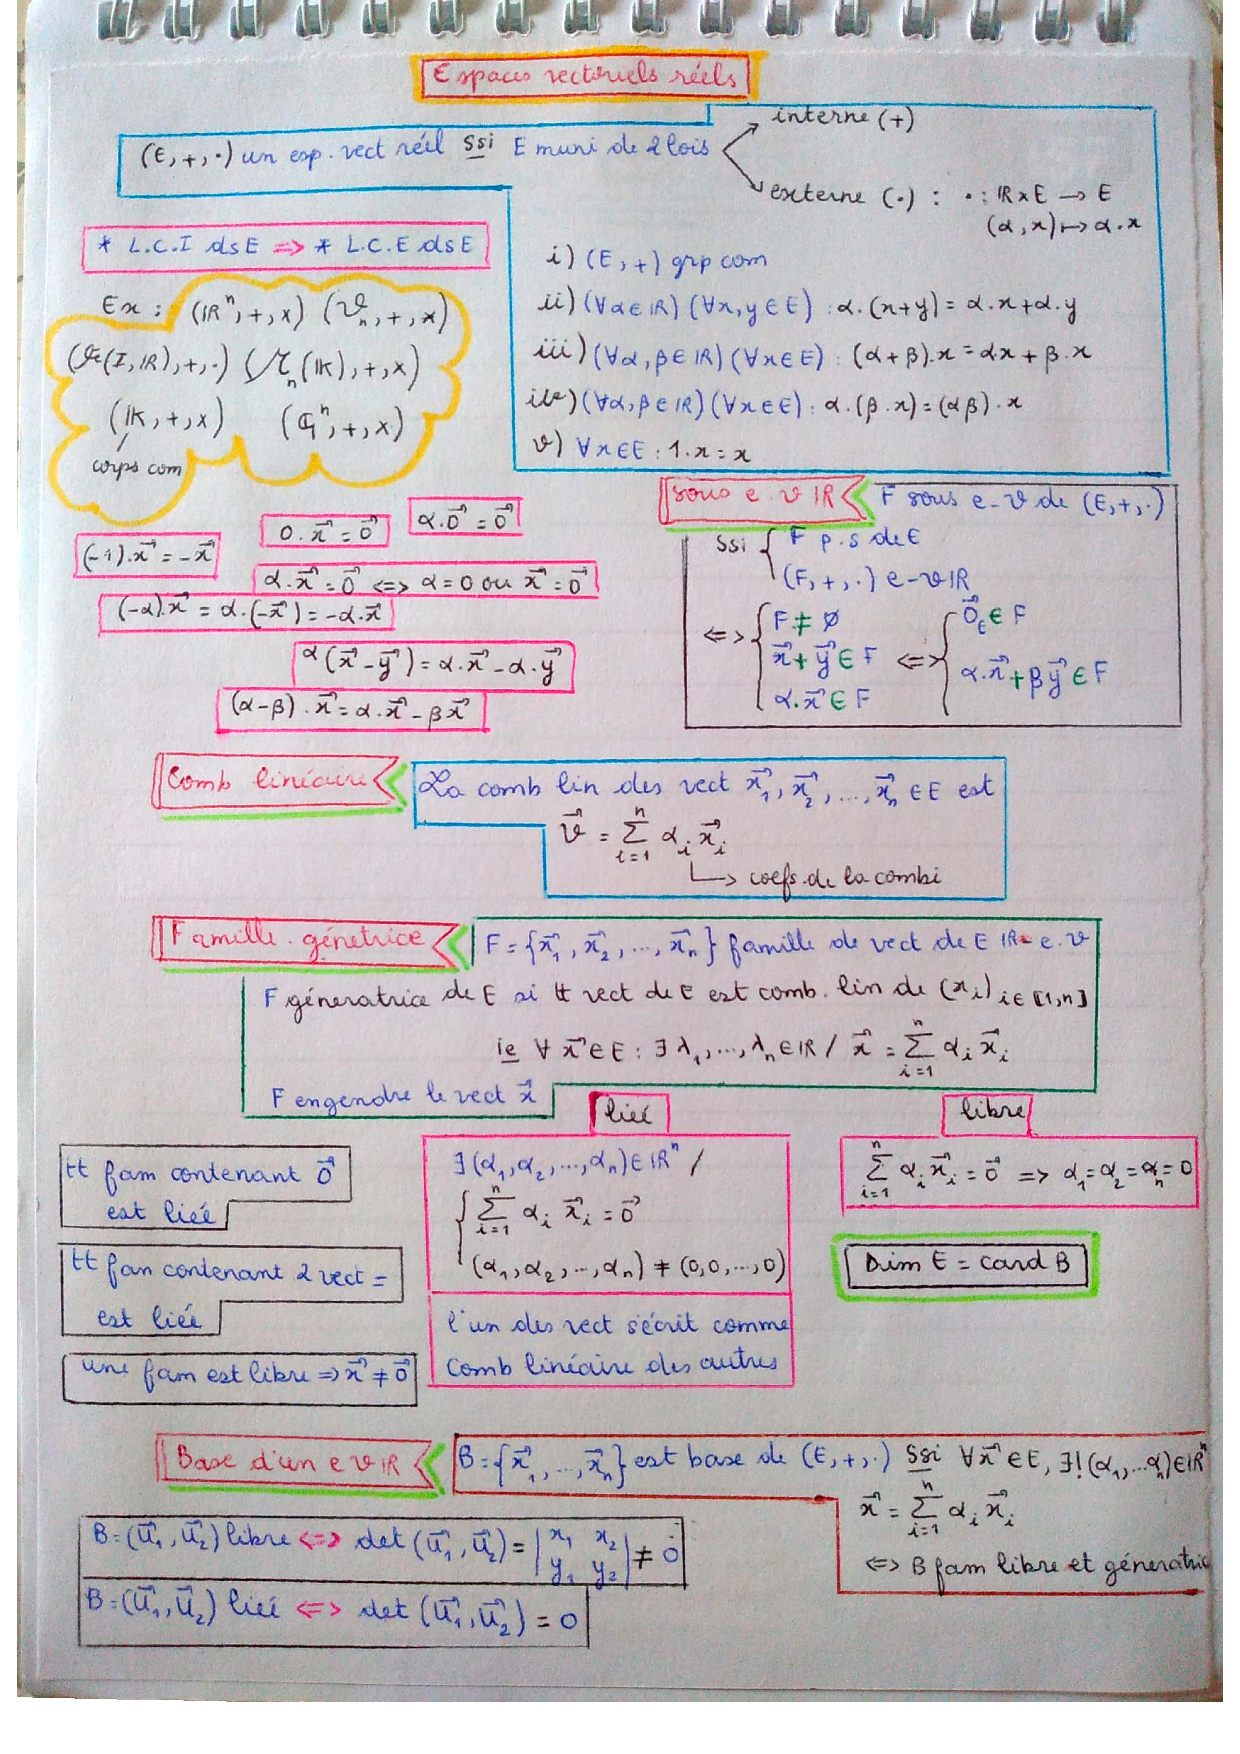 Espaces vectoriels réels
(E, +, ·) un esp. vect réel ssi E muni de 2 lois
interne (+)
externe (·) : · : ℝ × E → E
(α, x) ↦ α·x
* L.C.I ds E => * L.C.E ds E
i) (E, +) grp com
ii) (∀α∈ℝ) (∀x,y∈E) : α·(x+y) = α·x+α·y
iii) (∀α,β∈ℝ) (∀x∈E) : (α+β).x = αx + β.x
iv) (∀α,β∈ℝ) (∀x∈E) : α·(β·x) = (αβ)·x
v) ∀x∈E : 1·x = x
Ex : (ℝⁿ, +, x) (𝒱ₙ, +, x)
(ℱ(I, ℝ), +, ·) (ℳₙ(𝕂), +, x)
(𝕂, +, x) (ℂⁿ, +, x)
corps com
sous e.v ℝ
F sous e-v de (E, +, ·)
ssi { F p.s de E
(F, +, ·) e-vℝ
<=> { F ≠ ∅
x⃗ + y⃗ ∈ F
α.x⃗ ∈ F
<=> { 0⃗_E ∈ F
α.x⃗ + βy⃗ ∈ F
0.x⃗ = 0⃗
α.0⃗ = 0⃗
(-1).x⃗ = -x⃗
α.x⃗ = 0⃗ <=> α = 0 ou x⃗ = 0⃗
(-α).x⃗ = α.(-x⃗) = -α.x⃗
α(x⃗ - y⃗) = α.x⃗ - α.y⃗
(α-β).x⃗ = α.x⃗ - βx⃗
Comb linéaire
La comb lin des vect x⃗₁, x⃗₂, ..., x⃗ₙ ∈ E est
v⃗ = Σⁿᵢ₌₁ αᵢ x⃗ᵢ
↳ coefs de la combi
Famille génetrice
F = {x⃗₁, x⃗₂, ..., x⃗ₙ} famille de vect de E ℝ- e.v
F géneratrice de E si tt vect de E est comb. lin de (xᵢ) i∈[1,n]
ie ∀ x⃗ ∈ E : ∃ λ₁, ..., λₙ ∈ ℝ / x⃗ = Σⁿᵢ₌₁ αᵢ x⃗ᵢ
F engendre le vect x⃗
liée
∃ (α₁, α₂, ..., αₙ) ∈ ℝⁿ /
{ Σⁿᵢ₌₁ αᵢ x⃗ᵢ = 0⃗
(α₁, α₂, ..., αₙ) ≠ (0, 0, ..., 0)
l'un des vect s'écrit comme
comb linéaire des autres
libre
Σⁿᵢ₌₁ αᵢ x⃗ᵢ = 0⃗ => α₁ = α₂ = αₙ = 0
Dim E = card B
tt fam contenant 0⃗
est liée
tt fan contenant 2 vect =
est liée
une fam est libre => x⃗ ≠ 0⃗
Base d'un e v ℝ
B = {x⃗₁, ..., x⃗ₙ} est base de (E, +, ·) ssi ∀x⃗ ∈ E, ∃! (α₁, ... αₙ) ∈ ℝⁿ
x⃗ = Σⁿᵢ₌₁ αᵢ x⃗ᵢ
<=> B fam libre et géneratric
B = (u⃗₁, u⃗₂) libre <=> det (u⃗₁, u⃗₂) = | x₁ x₂
y₁ y₂ | ≠ 0
B = (u⃗₁, u⃗₂) liée <=> det (u⃗₁, u⃗₂) = 0